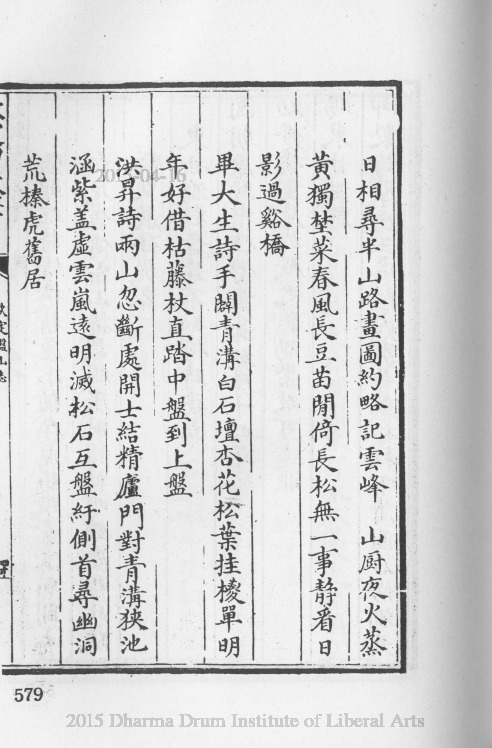 日相尋半山路畫圖約略記雲峰　山厨夜火蒸
黃獨埜菜春風長豆苗閒倚長松無一事静看日
影過谿橋
畢大生詩手闢青溝白石壇杏花松葉挂㯶單明
年好借枯藤杖直踏中盤到上盤
洪昇詩兩山忽斷處開士結精廬門對青溝狹池
涵紫盖虛雲嵐遠明滅松石互盤紆側首尋幽洞
荒榛虎舊居
579
2015-04-16
2015 Dharma Drum Institute of Liberal Arts